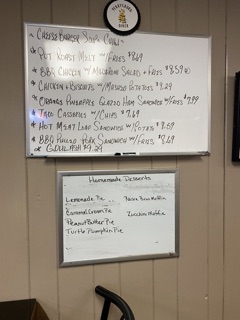 Cheeseburger Soup Cup/
* Pot Roast Melt w/Fries $9.69
* BBQ Chicken w/ Macaroni Salad + Fries $8.59
* Chicken + Biscuits w/Mashed Potatoes 9.29
* Pineapple Glazed Ham Sandwich w/Fries $7.99
* Taco w/Chips $7.69
* Hot Meat Loaf Sandwich w/Potato $9.69
* BBQ Pulled Pork Sandwich w/Fries $8.69
* or Goulash $9.29
Homemade Desserts
Lemonade Pie
Muffin
Caramel Cream Pie
Zucchini Muffin
Peanut Butter Pie
Turtle Pumpkin Pie